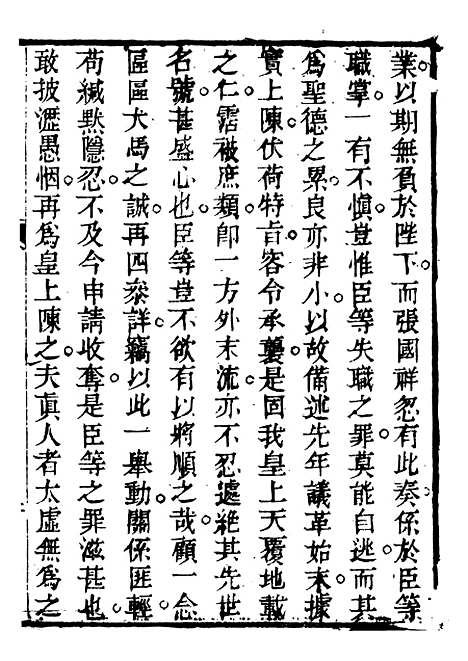 業以期無負於陛下而張國祥忽有此奏係於臣等
職掌一有不慎豈惟臣等失職之罪莫能自逃而其
爲聖德之累良亦非小以故備述先年議革始末據
實上陳伏荷特旨容令承襲是固我皇上天覆地載
之仁霑被庶類卽一方外末流亦不忍遽絶其先世
名號甚盛心也臣等豈不欲有以將順之哉顧一念
區區犬馬之誠再四叅詳竊以此一舉動關係匪輕
茍緘默隱忍不及今申請收奪是臣等之罪滋甚也
敢披瀝愚悃再爲皇上陳之夫眞人者太虛無爲之